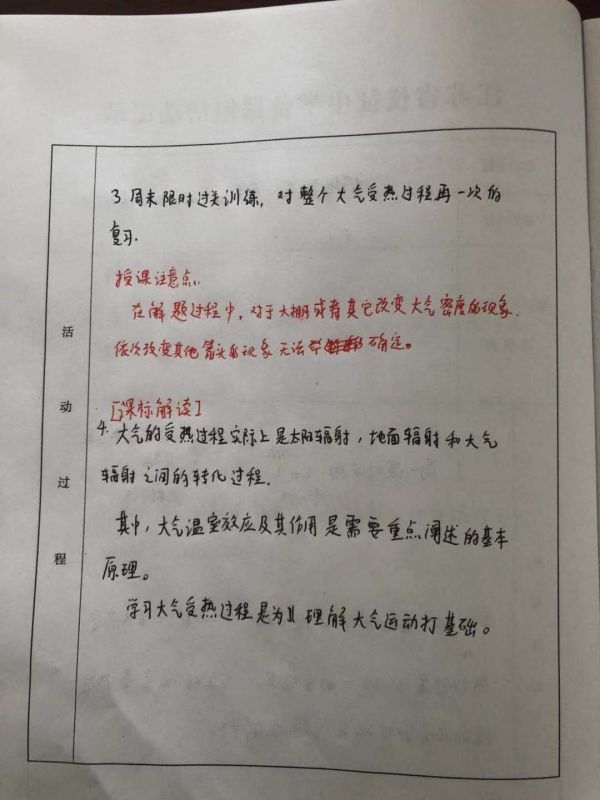 3. 周末限时过关训练，对整个大气受热过程再一次的
复习.
授课注意点.
在解题过程中，对于大棚或者其它改变大气密度的现象.
依次改变其他箭头的现象无法确定。
[课标解读]
4. 大气的受热过程实际上是太阳辐射，地面辐射和大气
辐射之间的转化过程.
其中，大气温室效应及其作用是需要重点阐述的基本
原理。
学习大气受热过程是为了理解大气运动打基础。
活
动
过
程